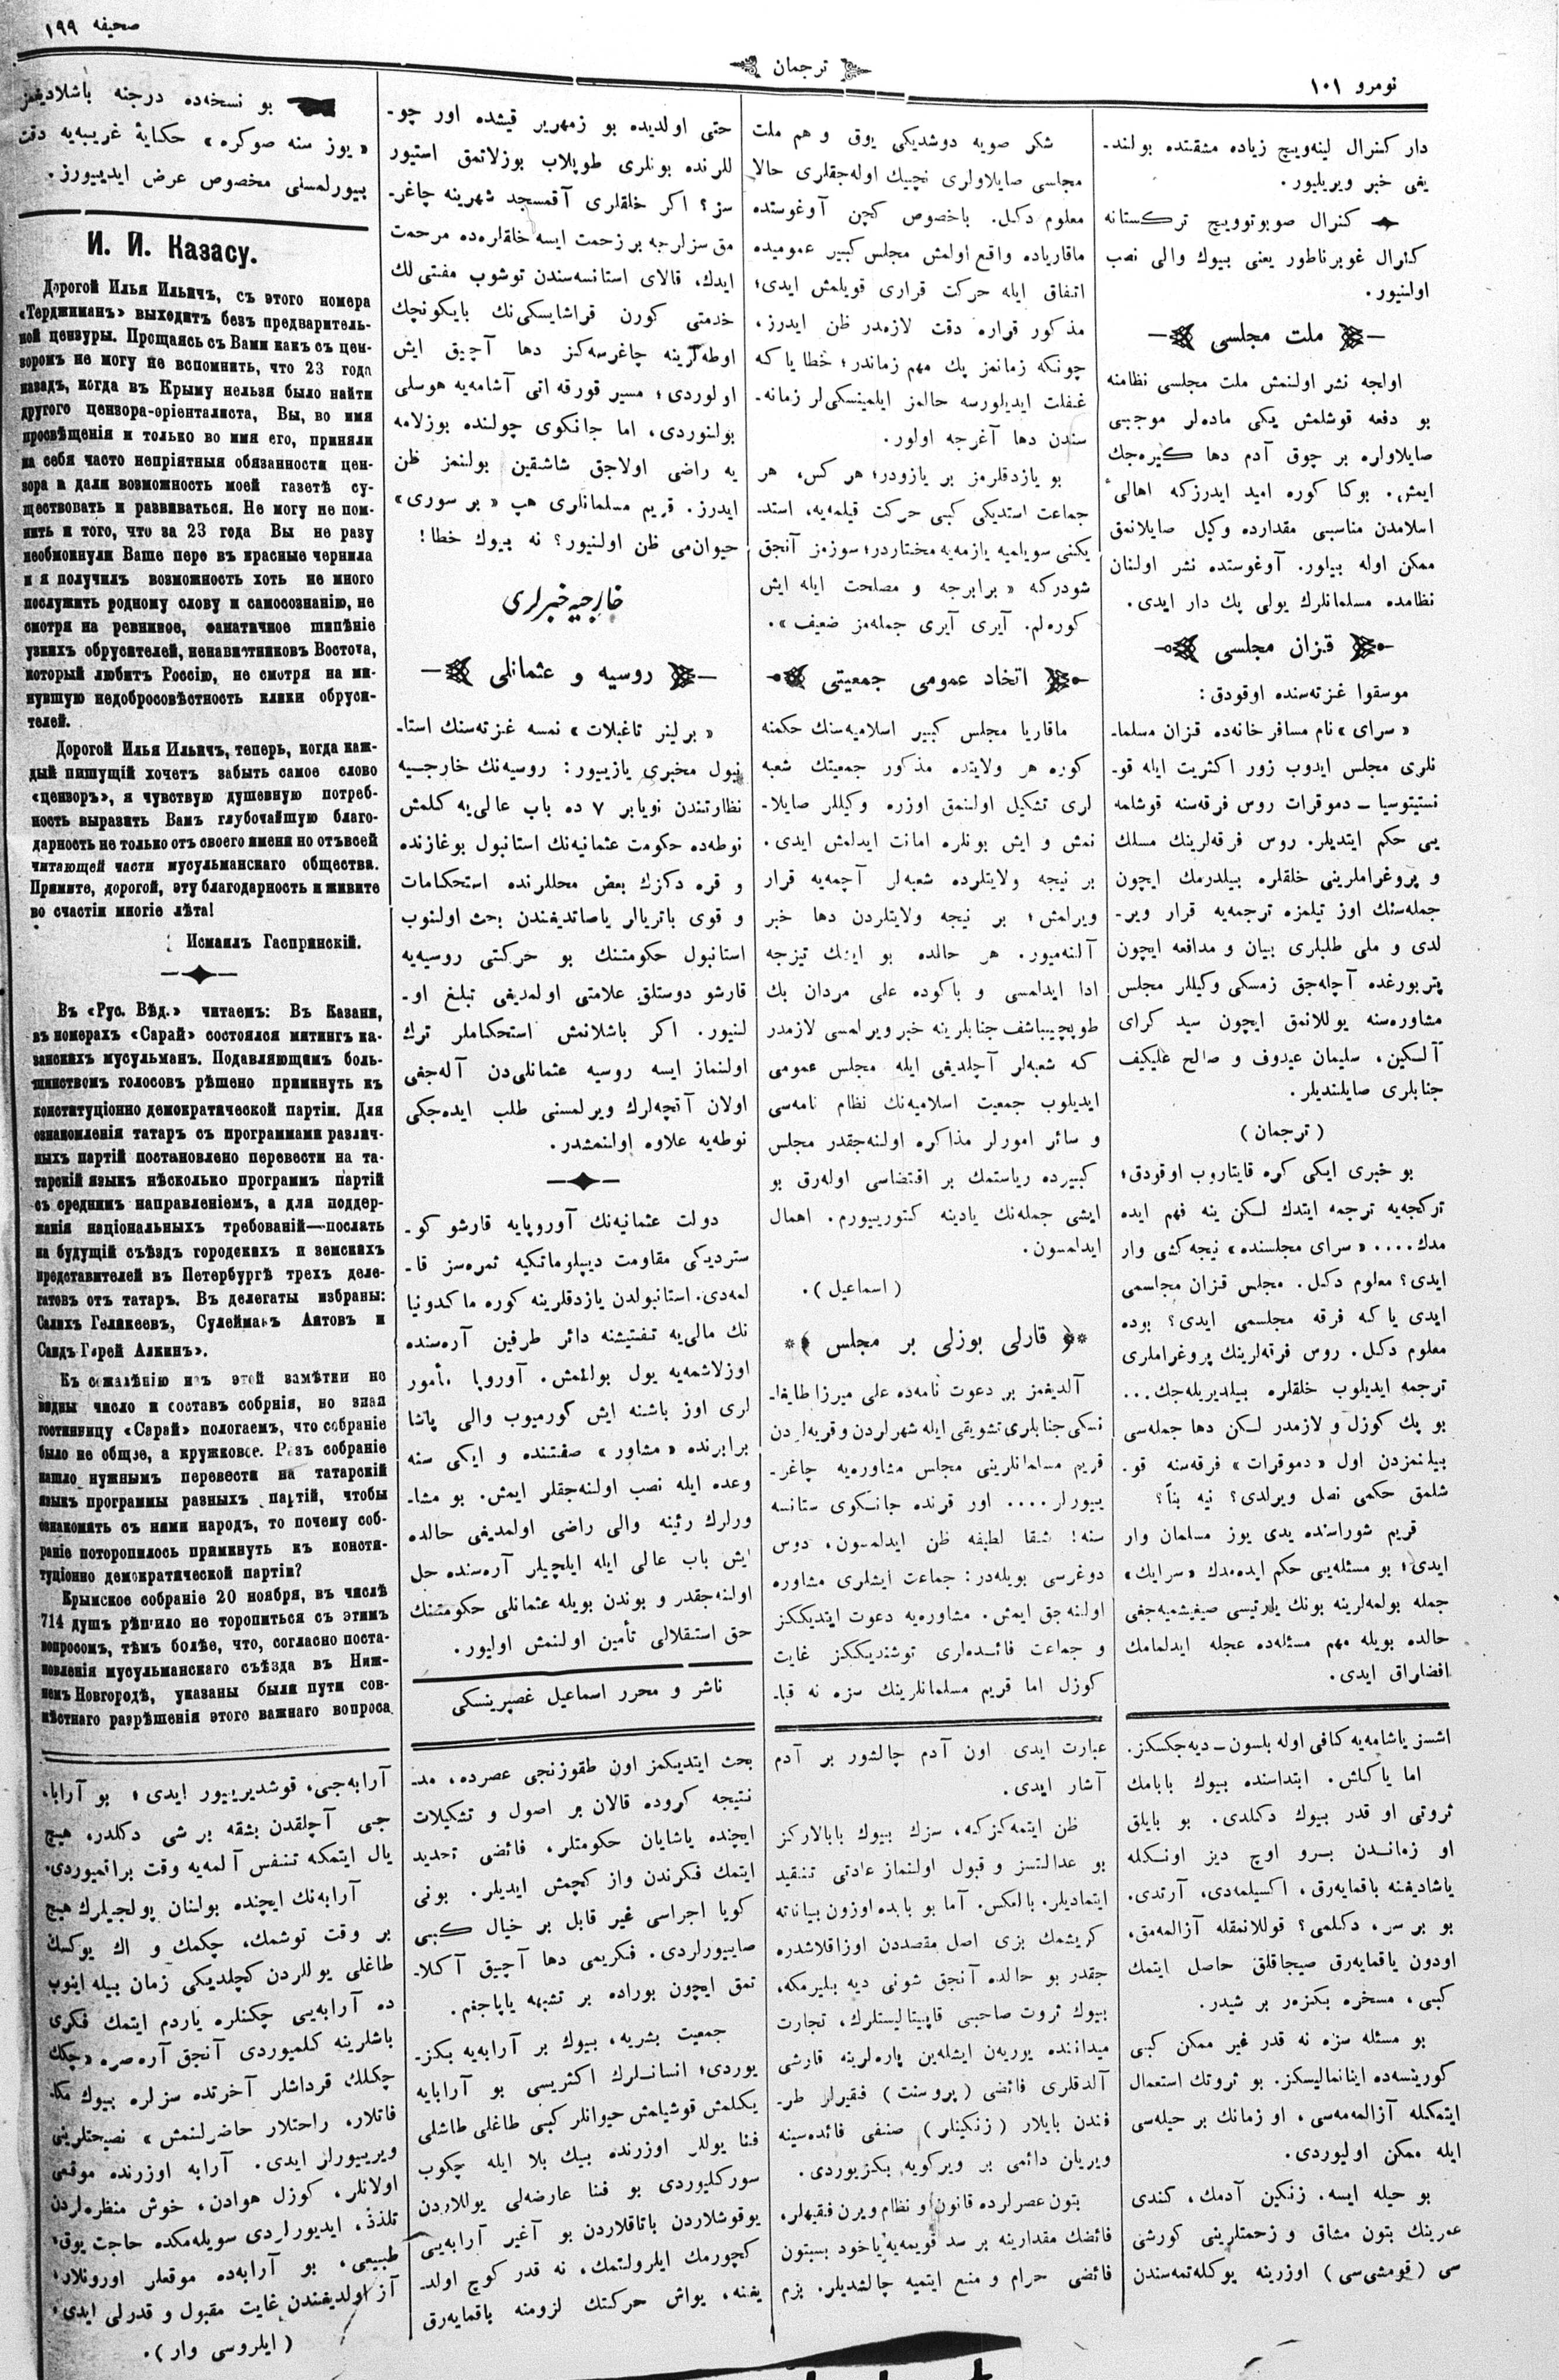 نومرو ١٠١
ترجمان
صحیفه ١٩٩
دار كنرال لینه‌ویچ زیاده مشقتده بولند-
یغی خبر ویریلیور.
كنرال صوبوتوویچ تركستانه
كنرال غوبرناطور یعنی بیوك والی نصب
اولنیور.
ملت مجلسی
اولجه نشر اولنمش ملت مجلسی نظامنه
بو دفعه قوشلمش یكی ماده‌لر موجبی
صایلاولره بر چوق آدم دها كیره‌جك
ایمش. بوكا كوره امید ایدرزكه اهالیٔ
اسلامدن مناسبی مقدارده وكیل صایلانمق
ممكن اوله بیلور. آوغوستده نشر اولنان
نظامده مسلمانلرك یولی پك دار ایدی.
قزان مجلسی
موسقوا غزته‌سنده اوقودق:
«سرای» نام مسافر خانه‌ده قزان مسلما-
نلری مجلس ایدوب زور اكثریت ایله قو-
نستیتوسیا – دموقرات روس فرقه‌سنه قوشلمه
یی حكم ایتدیلر. روس فرقه‌لرینك مسلك
و پروغراملرینی خلقلره بیلدرمك ایچون
جمله‌سنك اوز تیلمزه ترجمه‌یه قرار ویر-
لدی و ملی طلبلری بیان و مدافعه ایچون
پتربورغده آچله‌جق زمسكی وكیللر مجلس
مشاوره‌سنه یوللانمق ایچون سید كرای
آلكین، سلیمان عیدوف و صالح غلیكیف
جنابلری صایلندیلر.
(ترجمان)
بو خبری ایكی كره قایتاروب اوقودق؛
تركجه‌یه ترجمه ایتدك لسكن ینه فهم ایده
مدك.... «سرای مجلسنده» نیجه كشی وار
ایدی؟ معلوم دكل. مجلس قزان مجلسمی
ایدی یاكه فرقه مجلسمی ایدی؟ بوده
معلوم دكل. روس فرقه‌لرینك پروغراملری
ترجمه ایدیلوب خلقلره بیلدیریله‌جك...
بو پك كوزل و لازمدر لسكن دها جمله‌سی
بیلنمزدن اول «دموقرات» فرقه‌سنه قو-
شلمق حكمی نصل ویرلدی؟ نیه بناً؟
قریم شوراسنده یدی یوز مسلمان وار
ایدی؛ بو مسئله‌یی حكم ایده‌مدك «سرایك»
جمله بولمه‌لرینه بونك یارتیسی صیغیشمیه‌جغی
حالده بویله مهم مسئله‌ده عجله ایدلمامك
افضلراق ایدی.
شكر صویه دوشدیكی یوق و هم ملت
مجلسی صایلاولری نچیك اوله‌جقلری حالا
معلوم دكل. باخصوص كچن آوغوستده
ماقاریاده واقع اولمش مجلس كبیر عمومیده
اتفاق ایله حركت قراری قویلمش ایدی؛
مذكور قراره دقت لازمدر ظن ایدرز،
چونكه زمانمز پك مهم زماندر؛ خطا یا كه
غفلت ایدیلورسه حالمز ایلمینسكی‌لر زمانه-
سندن دها آغرجه اولور.
بو یازدقلرمز بر یازودر؛ هر كس، هر
جماعت استدیكی كبی حركت قیلمه‌یه، استد-
یكنی سویلمیه یازمه‌یه مختاردر؛ سوزمز آنجق
شودركه «برابرجه و مصلحت ایله ایش
كوره‌لم. آیری آیری جمله‌مز ضعیف».
اتخاد عمومی جمعیتی
ماقاریا مجلس كبیر اسلامیه‌سنك حكمنه
كوره هر ولایتده مذكور جمعیتك شعبه
لری تشكیل اولنمق اوزره وكیللر صایلا-
نمش و ایش بونلره امانت ایدلمش ایدی.
بر نیجه ولایتلرده شعبه‌لر آچمه‌یه قرار
ویرلمش؛ بر نیجه ولایتلردن دها خبر
آلنه‌میور. هر حالده بو ایشك تیزجه
ادا ایدلمسی و باكوده علی مردان بك
طوپچیباشف جنابلرینه خبر ویرلمسی لازمدر
كه شعبه‌لر آچلدیغی ایله مجلس عمومی
ایدیلوب جمعیت اسلامیه‌نك نظام نامه‌سی
و سائر امورلر مذاكره اولنه‌جقدر مجلس
كبیرده ریاستمك بر اقتضاسی اوله‌رق بو
ایشی جمله‌نك یادینه كتورییورم. اهمال
ایدلمسون.
(اسماعیل).
قارلی بوزلی بر مجلس
آلدیغمز بر دعوت نامه‌ده علی میرزا طایغا-
نسكی جنابلری تشویقی ایله شهرلردن و قریه‌لردن
قریم مسلمانلرینی مجلس مشاوره‌یه چاغر-
ییورلر.... اور قرنده جانكوی ستانسه
سنه! شقا لطیفه ظن ایدلمسون، دوس
دوغرسی بویله‌در: جماعت ایشلری مشاوره
اولنه‌جق ایمش. مشاوره‌یه دعوت ایتدیككز
و جماعت فائده‌لری توشندیككز غایت
كوزل اما قریم مسلمانلرینك سزه نه قبا-
حتی اولدیده بو زمهریر قیشده اور چو-
للرنده بونلری طوپلاب بوزلاتمق استیور
سز؟ اكر خلقلری آقمسجد شهرینه چاغر-
مق سزلرجه بر زحمت ایسه خلقلره‌ده مرحمت
ایدك، قالای استانسه‌سندن توشوب مفتی لك
خدمتی كورن قراشایسكی‌نك بایكونچك
اوطه‌لرینه چاغرسه‌كز دها آچیق ایش
اولوردی؛ مسیر قورقه اتی آشامه‌یه هوسلی
بولنوردی، اما جانكوی چولنده بوزلامه
یه راضی اولاجق شاشقین بولنمز ظن
ایدرز. قریم مسلمانلری هپ «بر سوری»
حیوان‌می ظن اولنیور؟ نه بیوك خطا!
خارجیه خبرلری
روسیه و عثمانلی
«برلینر تاغبلات» نمسه غزته‌سنك استا-
نبول مخبری یازییور: روسیه‌نك خارجیه
نظارتندن نویابر ٧ ده باب عالی‌یه كلمش
نوطه‌ده حكومت عثمانیه‌نك استانبول بوغازنده
و قره دكزك بعض محللرنده استحكامات
و قوی باتریالر یاصاتدیغندن بحث اولنوب
استانبول حكومتنك بو حركتی روسیه‌یه
قارشو دوستلق علامتی اولمدیغی تبلیغ او-
لنیور. اكر باشلانمش استحكاملر ترك
اولنماز ایسه روسیه عثمانلی‌دن آله‌جغی
اولان آقچه‌لرك ویرلمسنی طلب ایده‌جكی
نوطه‌یه علاوه اولنمشدر.
دولت عثمانیه‌نك آوروپایه قارشو كو-
ستردیكی مقاومت دیپلوماتكیه ثمره‌سز قا-
لمه‌دی. استانبولدن یازدقلرینه كوره ماكدونیا
نك مالی‌یه تفتیشنه دائر طرفین آره‌سنده
اوزلاشمه‌یه یول بولنمش. آوروپا مأمور
لری اوز باشنه ایش كورمیوب والی پاشا
برابرنده «مشاور» صفتنده و ایكی سنه
وعده ایله نصب اولنه‌جقلر ایمش. بو مشا-
ورلرك رئینه والی راضی اولمدیغی حالده
ایش باب عالی ایله ایلچیلر آره‌سنده حل
اولنه‌جقدر و بوندن بویله عثمانلی حكومتنك
حق استقلالی تأمین اولنمش اولیور.
ناشر و محرر اسماعیل غصپرینسكی
بو نسخه‌ده درجنه باشلادیغمز
«یوز سنه صوكره» حكایهٔ غریبه‌یه دقت
بیورلمسنی مخصوص عرض ایدییورز.
И. И. Казасу.
Дорогой Илья Ильичъ, съ этого номера
«Терджиманъ» выходитъ безъ предваритель-
ной цензуры. Прощаясь съ Вами какъ съ цен-
зоромъ не могу не вспомнить, что 23 года
назадъ, когда въ Крыму нельзя было найти
другого цензора-оріенталиста, Вы, во имя
просвѣщенія и только во имя его, приняли
на себя часто непріятныя обязанности цен-
зора и дали возможность моей газетѣ су-
ществовать и развиваться. Не могу не пом-
нить и того, что за 23 года Вы не разу
необмокнули Ваше перо въ красные чернила
и я получилъ возможность хоть не много
послужить родному слову и самосознанію, не
смотря на ревнивое, фанатичное шипѣніе
узкихъ обрусителей, ненавистниковъ Востока,
который любитъ Россію, не смотря на ми-
нувшую недобросовѣстность клики обруси-
телей.
Дорогой Илья Ильичъ, теперь, когда каж-
дый пишущій хочетъ забыть самое слово
«цензоръ», я чувствую душевную потреб-
ность выразить Вамъ глубочайшую благо-
дарность не только отъ своего имени но отъ всей
читающей части мусульманскаго общества.
Примите, дорогой, эту благодарность и живите
во счастіи многіе лѣта!
Исмаилъ Гаспринскій.
Въ «Рус. Вѣд.» читаемъ: Въ Казани,
въ номерахъ «Сарай» состоялся митингъ ка-
занскихъ мусульманъ. Подавляющимъ боль-
шинствомъ голосовъ рѣшено примкнуть къ
конституціонно демократической партіи. Для
ознакомленія татаръ съ программами различ-
ныхъ партій постановлено перевести на та-
тарскій языкъ нѣсколько программъ партій
съ среднимъ направленіемъ, а для поддер-
жанія національныхъ требованій—послать
на будущій съѣздъ городскихъ и земскихъ
представителей въ Петербургѣ трехъ деле-
гатовъ отъ татаръ. Въ делегаты избраны:
Салихъ Геликеевъ, Сулейманъ Аитовъ и
Саидъ Герей Алкинъ».
Къ сожалѣнію изъ этой замѣтки не
видны число и составъ собрнія, но зная
гостинницу «Сарай» пологаемъ, что собраніе
было не общее, а кружковое. Разъ собраніе
нашло нужнымъ перевести на татарскій
языкъ программы разныхъ партій, чтобы
ознакомить съ ними народъ, то почему соб-
раніе поторопилось примкнуть къ консти-
туціонно демократической партіи?
Крымское собраніе 20 ноября, въ числѣ
714 душъ рѣшило не торопиться съ этимъ
вопросомъ, тѣмъ болѣе, что, согласно поста-
новленія мусульманскаго съѣзда въ Ниж-
немъ Новгородѣ, указаны были пути сов-
мѣстнаго разрѣшенія этого важнаго вопроса
اشسز یاشامه‌یه كافی اوله بلسون – دیه‌جكسكز.
اما یاكلش. ابتداسنده بیوك بابامك
ثروتی او قدر بیوك دكلدی. بو بایلق
او زمانـدن بـرو اوچ دیز اونـكله
یاشادیغنه باقمایه‌رق، اكسیلمه‌دی، آرتدی.
بو بر سر، دكلمی؟ قوللانمقله آزالمه‌مق،
اودون یاقمایه‌رق صیجاقلق حاصل ایتمك
كبی، مسخره بكزه‌ر بر شیدر.
بو مسئله سزه نه قدر غیر ممكن كبی
كورینسه‌ده اینانمالیسكز. بو ثروتك استعمال
ایتمكله آزالمه‌مه‌سی، او زمانك بر حیله‌سی
ایله ممكن اولیوردی.
بو حیله ایسه. زنكین آدمك، كندی
عمرینك بتون مشاق و زحمتلرینی كورشی
سی (قومشی‌سی) اوزرینه یوكله‌تمه‌سندن
عبارت ایدی اون آدم چالشور بر آدم
آشار ایدی.
ظن ایتمه‌كزكه، سزك بیوك بابالاركز
بو عدالتسز و قبول اولنماز عادتی تنقید
ایتمادیلر. بالعكس. آما بو بابده اوزون بیاناته
كریشمك بزی اصل مقصددن اوزاقلاشدره
جقدر بو حالده آنجق شونی دیه بلیرمكه،
بیوك ثروت صاحبی قاپیتالیستلرك، تجارت
میداننده یوریه‌ن ایشله‌ین پاره‌لرینه قارشی
آلدقلری فائضی (پروسنت) فقیرلر طر-
فندن بایلار (زنكینلر) صنفی فائده‌سینه
ویریلن دائمی بر ویركویه بكزیوردی.
بتون عصرلرده قانون و نظام ویرن فقیهلر،
فائضك مقدارینه بر سد قویمه‌یه یاخود بسبتون
فائضی حرام و منع ایتمیه چالشدیلر. بزم
بحث ایتدیكمز اون طقوزنجی عصرده، مد-
نتیجه كروده قالان بر اصول و تشكیلات
ایچنده یاشایان حكومتلر، فائضی تحدید
ایتمك فكرندن واز كچمش ایدیلر. بونی
كویا اجراسی غیر قابل بر خیال كبی
صاییورلردی. فكریمی دها آچیق آكلا-
تمق ایچون بوراده بر تشبیه یاپاجغم.
جمعیت بشریه، بیوك بر آرابه‌یه بكز-
یوردی؛ انسانـلرك اكثریسی بو آرابایه
یكلمش قوشیلمش حیوانلر كبی طاغلی طاشلی
فنا یوللر اوزرنده بیك بلا ایله چكوب
سوركلیوردی بو فنا عارضه‌لی یوللاردن
یوقوشلاردن باتاقلاردن بو آغیر آرابه‌یی
كچورمك ایلرولتمك، نه قدر كوچ اولد-
یغنه، یواش حركتك لزومنه باقمایه‌رق
آرابه‌جی، قوشدیرییور ایدی؛ بو آرابا-
جی آچلقدن بشقه بر شی دكلدر، هیچ
یال ایتمكه تنفس آلمه‌یه وقت براقمیوردی.
آرابه‌نك ایچنده بولنان یولجیلرك هیچ
بر وقت توشمك، چكمك و اك یوكسك
طاغلی یوللردن كچلدیكی زمان بیله اینوپ
ده آرابه‌یی چكنلره یاردم ایتمك فكری
باشلرینه كلمیوردی آنجق آره صره «چكك
چكلك قرداشلر آخرتده سزلره بیوك مكا-
فاتلار، راحتلار حاضرلنمش» نصیحتلرینی
ویرییورلر ایدی. آرابه اوزرنده موقعی
اولانلر، كوزل هوادن، خوش منظره‌لردن
تلذذ، ایدیورلردی سویله‌مكده حاجت یوق؛
طبیعی، بو آرابه‌ده موقعلر اورونلار،
آز اولدیغندن غایت مقبول و قدرلی ایدی؛
(ایلروسی وار).